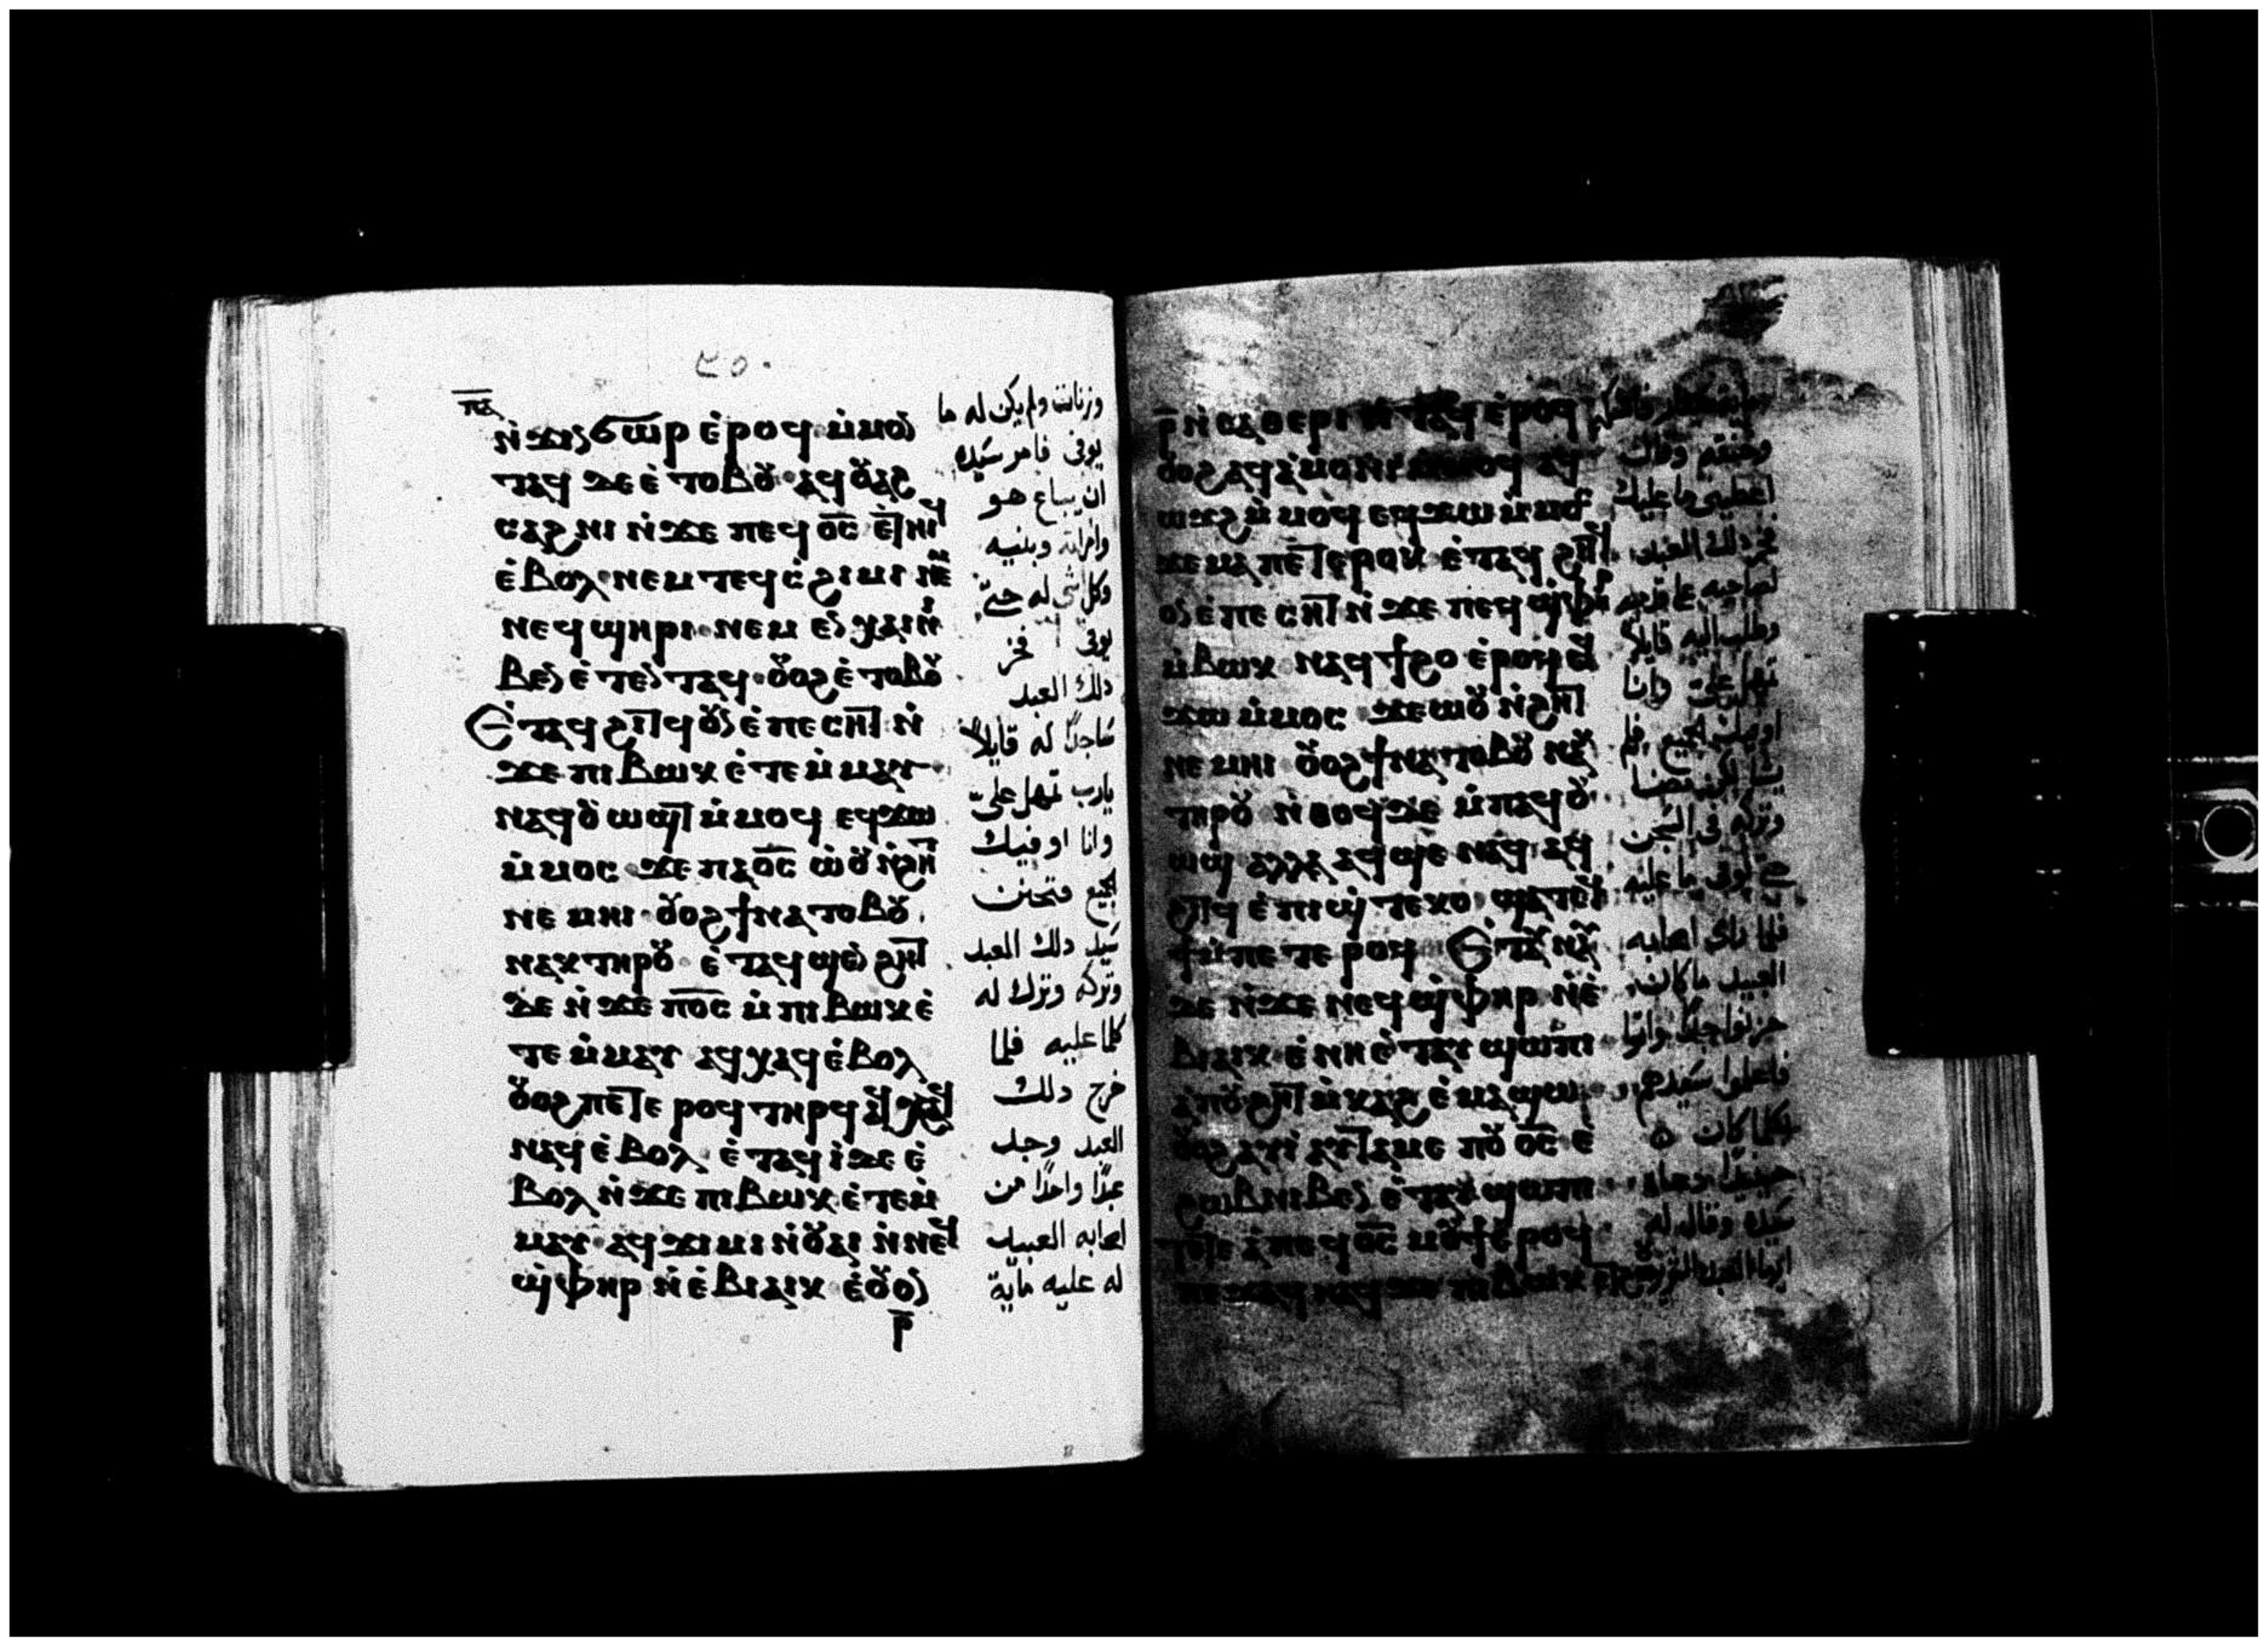 ⲡⲁ
ⲛ̇ϫⲓⲛϭⲱⲣ ⲉ̇ⲣⲟϥ ⲙ̇ⲙⲟⲛ
ⲧⲁϥ ⲇⲉ ⲉ̇ ⲧⲟⲃⲟⲩ ⲁϥⲟⲩⲁϩ
ⲥⲁϩⲛⲓ ⲛ̇ϫⲉ ⲡⲉϥ ⲟ̅ⲥ̅ ⲉ̇ⲧⲏⲓϥ
ⲉ̇ⲃⲟⲗ ⲛⲉⲙ ⲧⲉϥ ⲥ̇ϩⲓⲙⲓ ⲛⲉⲙ
ⲛⲉϥϣⲏⲣⲓ ⲛⲉⲙ ⲉⲛⲭⲁⲓ ⲛⲓ
ⲃⲉⲛ ⲉ̇ⲧⲉⲛⲧⲁϥ ⲟⲩⲟϩ ⲉ̇ⲧⲟⲃⲟⲩ
Ⲉ̇ⲧⲁϥϩⲓⲧϥ ⲟⲩⲛ ⲉ̇ⲡⲉⲥⲏⲧ ⲛ̇
ϫⲉ ⲡⲓⲃⲱⲕ ⲉ̇ⲧⲉ ⲙ̇ⲙⲁⲩ
ⲛⲁϥⲟⲩⲱϣⲧ ⲙ̇ⲙⲟϥ ⲉϥϫⲱ
ⲙ̇ⲙⲟⲥ ϫⲉ ⲡⲁⲟ̅ⲥ̅ ⲱ̇ⲟⲩ ⲛ̇ϩⲏⲧ
ⲛⲉⲙⲏⲓ ⲟⲩⲟϩ ϯⲛⲁⲧⲟⲃⲟⲩ
ⲛⲁⲕ ⲧⲏⲣⲟⲩ ⲉ̇ⲧⲁϥϣⲉⲛ ϩⲏⲧ
ⲇⲉ ⲛ̇ϫⲉ ⲡ̅ⲟ̅ⲥ̅ ⲙ̇ⲡⲓⲃⲱⲕ ⲉ̇
ⲧⲉ ⲙ̇ⲙⲁⲩ ⲁϥⲭⲁϥ ⲉ̇ⲃⲟⲗ
ⲟⲩⲟϩ ⲡⲉⲧⲉⲣⲟϥ ⲧⲏⲣϥ ⲁϥⲭⲁϥ
ⲛⲁϥ ⲉ̇ⲃⲟⲗ ⲉ̇ⲧⲁϥⲓ̇ ⲇⲉ ⲉ̇
ⲃⲟⲗ ⲛ̇ϫⲉ ⲡⲓⲃⲱⲕ ⲉ̇ⲧⲉⲙ̇
ⲙⲁⲩ ⲁϥϫⲓⲙⲓ ⲛ̇ⲟⲩⲁⲓ ⲛ̇ⲛⲉϥ
ϣ̇ⲫⲏⲣ ⲛ̇ⲉ̇ⲃⲓⲁⲓⲕ ⲉ̇ⲟⲩⲟⲛ
ⲣ̅
وزنات ولم يكن له ما
يوفى فامر سيده
ان يباع هو
وامراته وبنيه
وكل شى له حتى
يوفى فخر
دلك العبد
ساجدًا له قايلاً
يارب تمهل علىّ
وانا اوفيك
الجميع فتحنن
سيد دلك العبد
وتركه وترك له
كلما عليه فلما
خرج دلك
العبد وجد
عبدًا واحدًا من
اصحابه العبيد
له عليه مايّة
ⲣ̅ ⲛ̇ⲥⲁⲑⲉⲣⲓ ⲛ̇ⲧⲁϥ ⲉ̇ⲣⲟϥ
ⲟⲩⲟϩ ⲁϥⲁ̇ⲙⲟⲛⲓ ⲙ̇ⲙⲟϥ ⲁϥ
ⲱϫϩ ⲙ̇ⲙⲟϥ ⲉϥϫⲱ ⲙ̇ⲙⲟⲥ
ϫⲉ ⲙⲁ ⲡⲉⲧⲉⲣⲟⲕ ⲉ̇ⲧⲁϥϩⲓⲧϥ
ⲟⲩⲛ ⲉ̇ⲡⲉⲥⲏⲧ ⲛ̇ϫⲉ ⲡⲉϥϣ̇ⲫⲏⲣ
ⲙ̇ⲃⲱⲕ ⲛⲁϥϯϩⲟ ⲉ̇ⲣⲟϥ ⲉϥ
ϫⲱ ⲙ̇ⲙⲟⲥ ϫⲉ ⲱⲟⲩ ⲛ̇ϩⲏⲧ
ⲛⲉⲙⲏⲓ ⲟⲩⲟϩ ϯⲛⲁⲧⲟⲃⲟⲩ ⲛⲁⲕ
ⲧⲏⲣⲟⲩ ⲛ̇ⲑⲟϥ ⲇⲉ ⲙ̇ⲡⲁϥⲟⲩ
ⲱϣ ⲁⲗⲗⲁ ⲁϥϣⲉ ⲛⲁϥ ⲁϥ
ϩⲓⲧϥ ⲉ̇ⲡⲓϣ̇ⲧⲉⲕⲟ ϣⲁⲧⲉϥ
ϯ ⲙ̇ⲡⲉⲧⲉⲣⲟϥ Ⲉ̇ⲧⲁⲩⲛⲁⲩ
ⲇⲉ ⲛ̇ϫⲉ ⲛⲉϥϣ̇ⲫⲏⲣ ⲛ̇ⲉ̇
ⲃⲓⲁⲓⲕ ⲉ̇ⲛⲏ ⲉ̇ⲧⲁⲩϣⲱⲡⲓ
ⲁ̇ⲡⲟⲩϩⲏⲧ ⲙ̇ⲕⲁϩ ⲉ̇ⲙⲁϣⲱ
ⲟⲩⲟϩ ⲁⲩⲓ̇ ⲁⲩⲧⲁⲙⲉ ⲡⲟⲩ ⲟ̅ⲥ̅ ⲉ̇
ϩⲱⲃ ⲛⲓⲃⲉⲛ ⲉ̇ⲧⲁⲩϣⲱⲡⲓ
ⲧⲟⲧⲉ ⲁ̇ ⲡⲉϥⲟ̅ⲥ̅ ⲙⲟⲩϯ ⲉ̇ⲣⲟϥ
ⲡⲉϫⲁϥ ⲛⲁϥ ϫⲉ ⲡⲓⲃⲱⲕ
وخنقه وقال
اعطينى ما عليك
فخر دلك العبد
وطلب اليه قايلاً
تمهل علىّ وانا
اوفيك الجميع فلم
وتركه فى السجن
حتى يوفى ما عليه
فلما راى اصحابه
العبيد ما كان
حزنوا جدًا واتوا
فاعلموا سيدهم
بكلما كان
حينيدًا دعاه
سيده وقال له